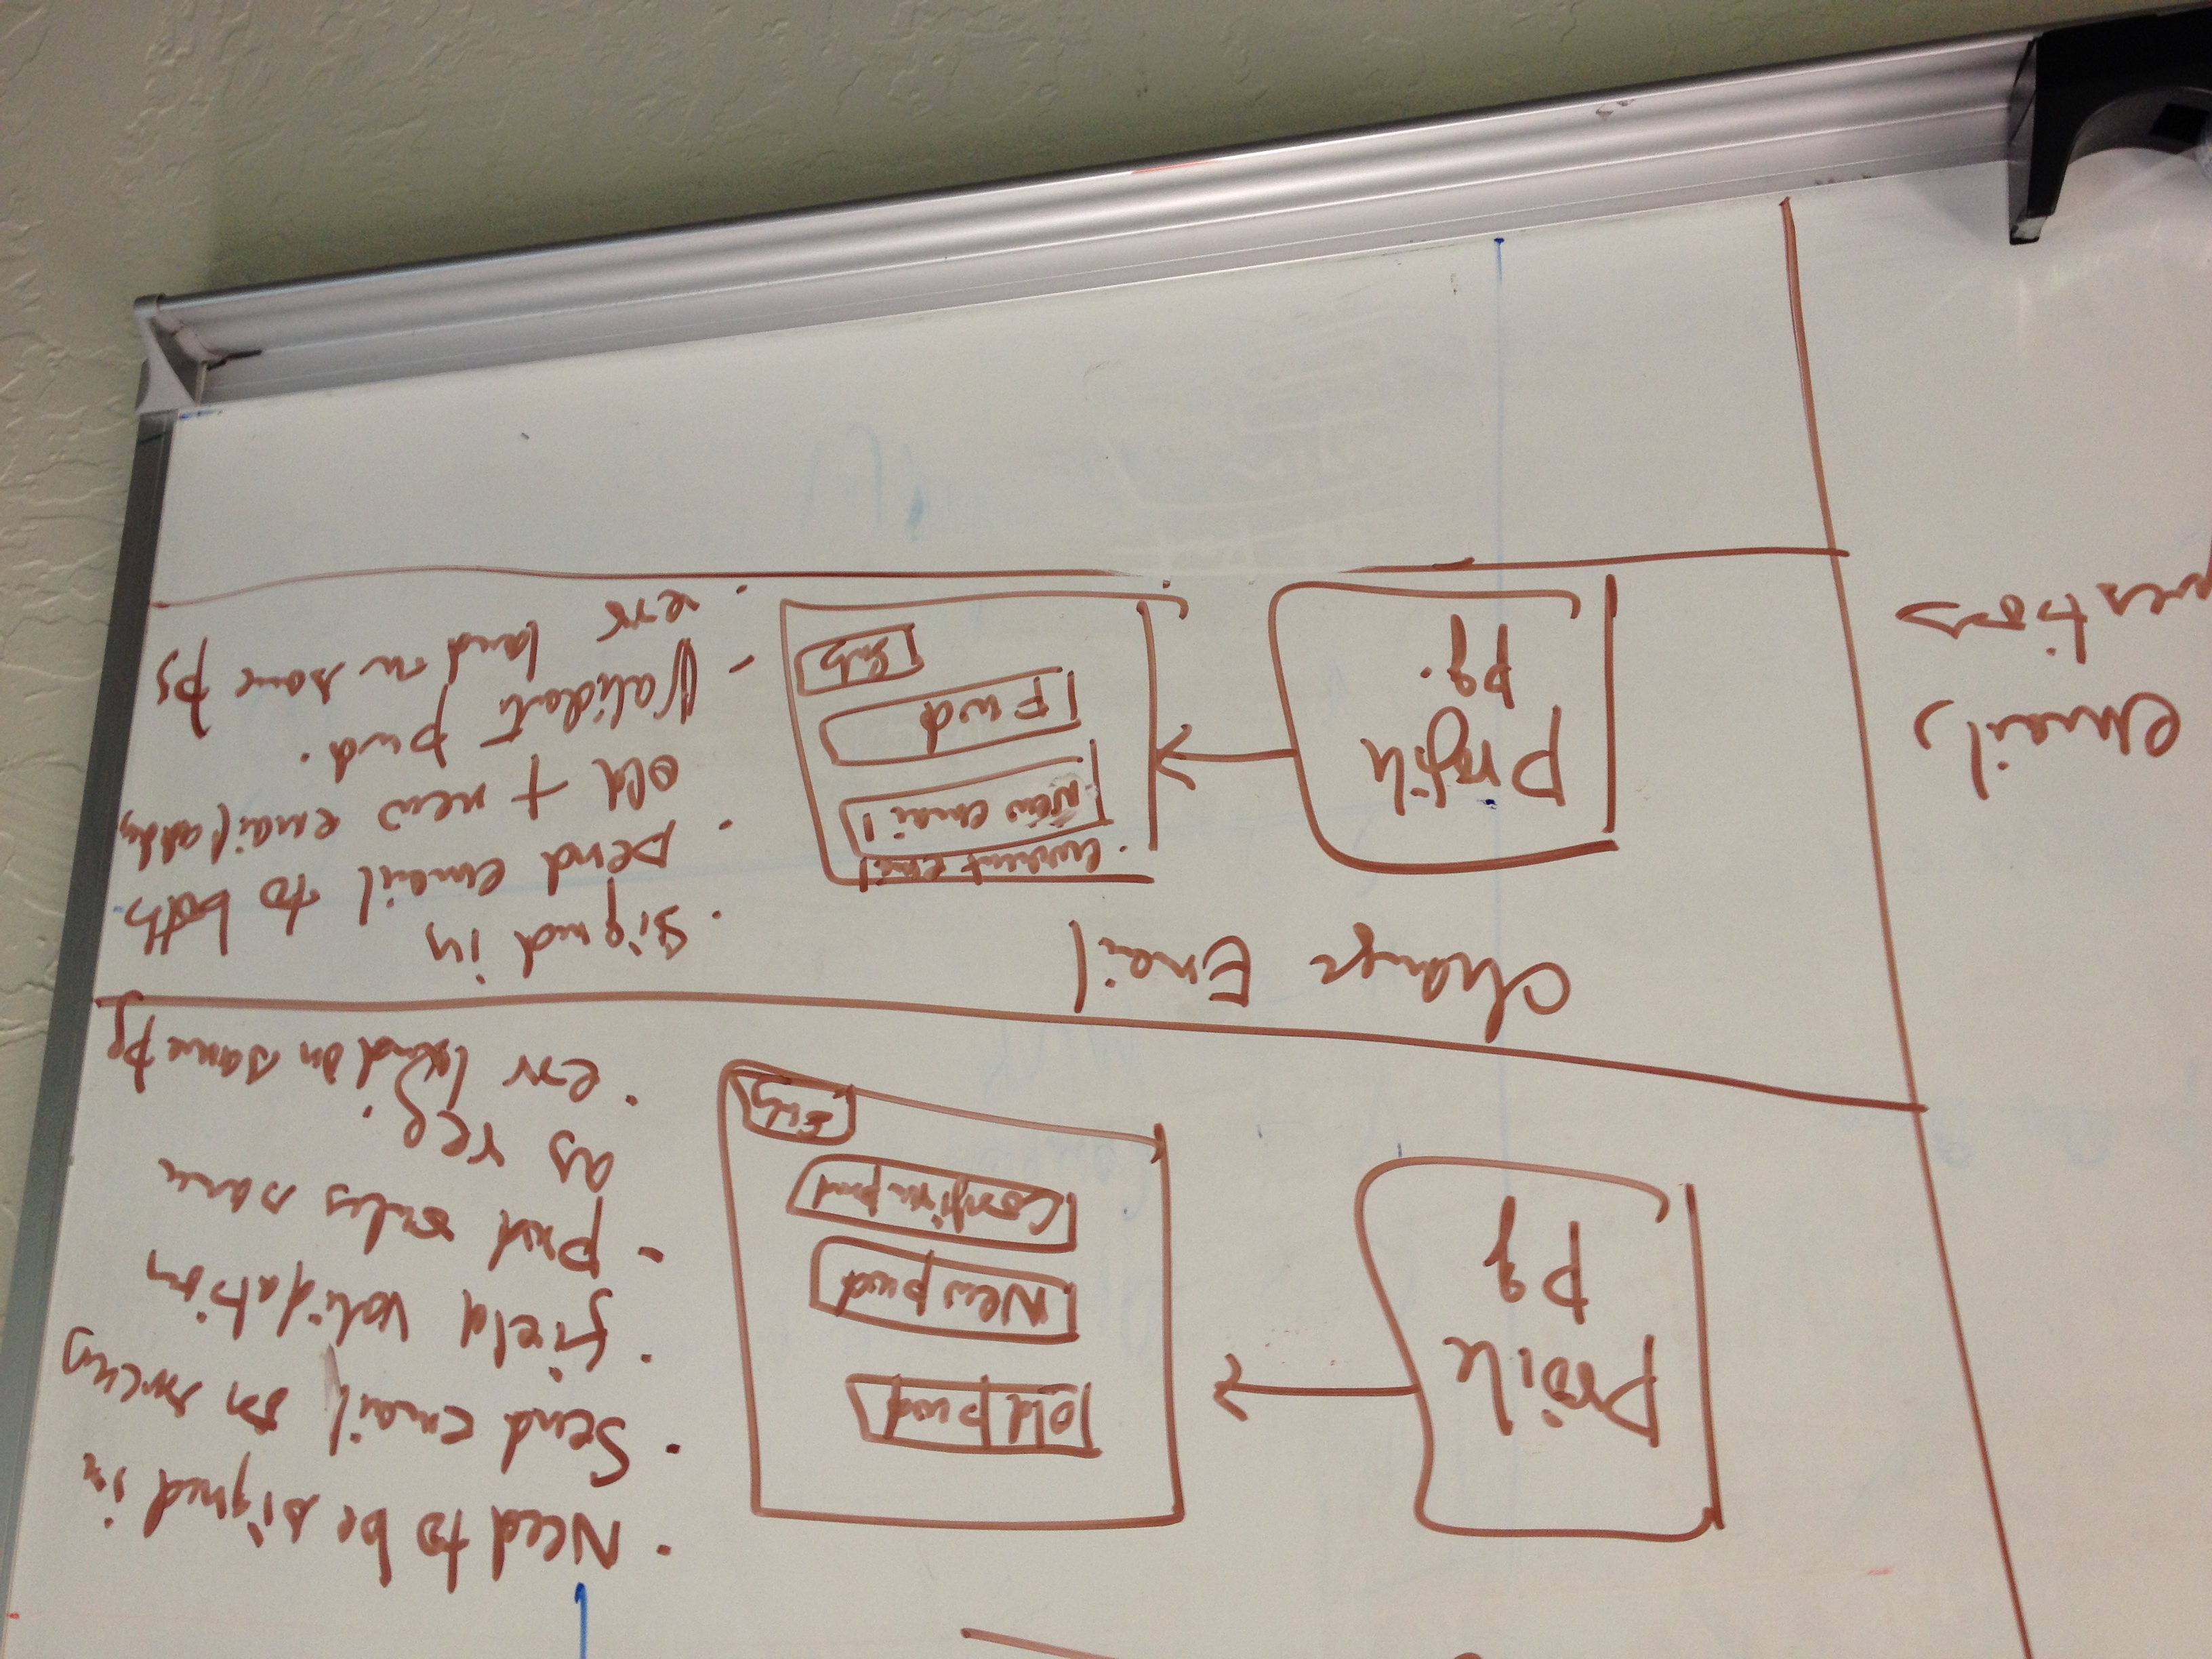 Proile
pg
old pwd
New pwd
Confirm pwd
Sub
· Need to be signed in
· Send email on success
· field validation
- pwd rules same
as reg.
· err land on same pg
Change Email
Profile
pg.
· current email
New email
Pwd
Sub
· signed in
· send email to both
old + new email addres
- Validate pwd.
· err land on same pg
email,
uestions